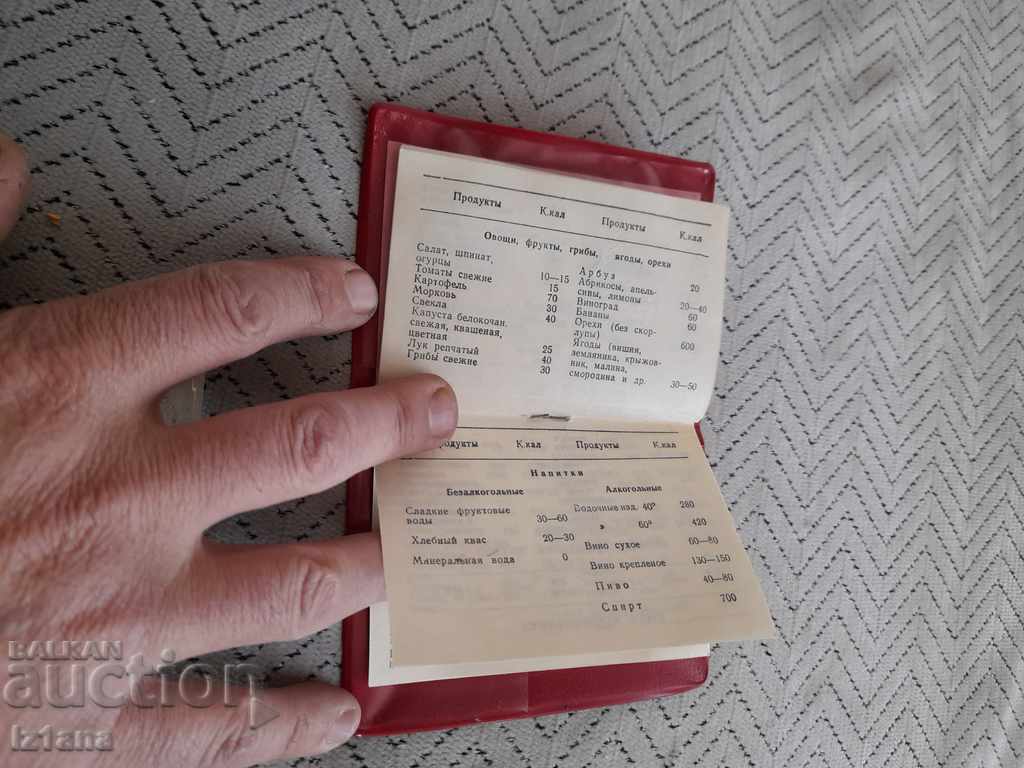 Продукты К.кал Продукты К.кал
Овощи, фрукты, грибы, ягоды, орехи
Салат, шпинат,
огурцы 10—15
Томаты свежие 15
Картофель 70
Морковь 30
Свекла 40
Капуста белокочан.
свежая, квашеная,
цветная 25
Лук репчатый 40
Грибы свежие 30
Арбуз 20
Абрикосы, апель-
сины, лимоны 20—40
Виноград 60
Бананы 60
Орехи (без скор-
лупы) 600
Ягоды (вишня,
земляника, крыжов-
ник, малина,
смородина и др. 30—50
родукты К.кал Продукты К.кал
Напитки
Безалкогольные
Сладкие фруктовые
воды 30—60
Хлебный квас 20—30
Минеральная вода 0
Алкогольные
Водочные изд. 40° 280
» 60° 420
Вино сухое 60—80
Вино крепленое 130—150
Пиво 40—80
Спирт 700
BALKAN
auction
iztana